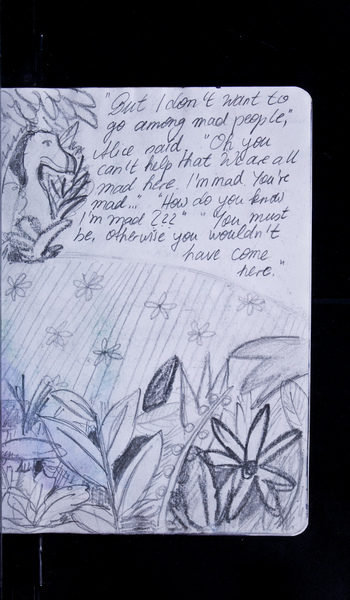 "But I don't want to
go among mad people,"
Alice said. "Oh you
can't help that We are all
mad here. I'm mad. You're
mad..." "How do you know
I'm mad???" "You must
be, otherwise you wouldn't
have come
here."